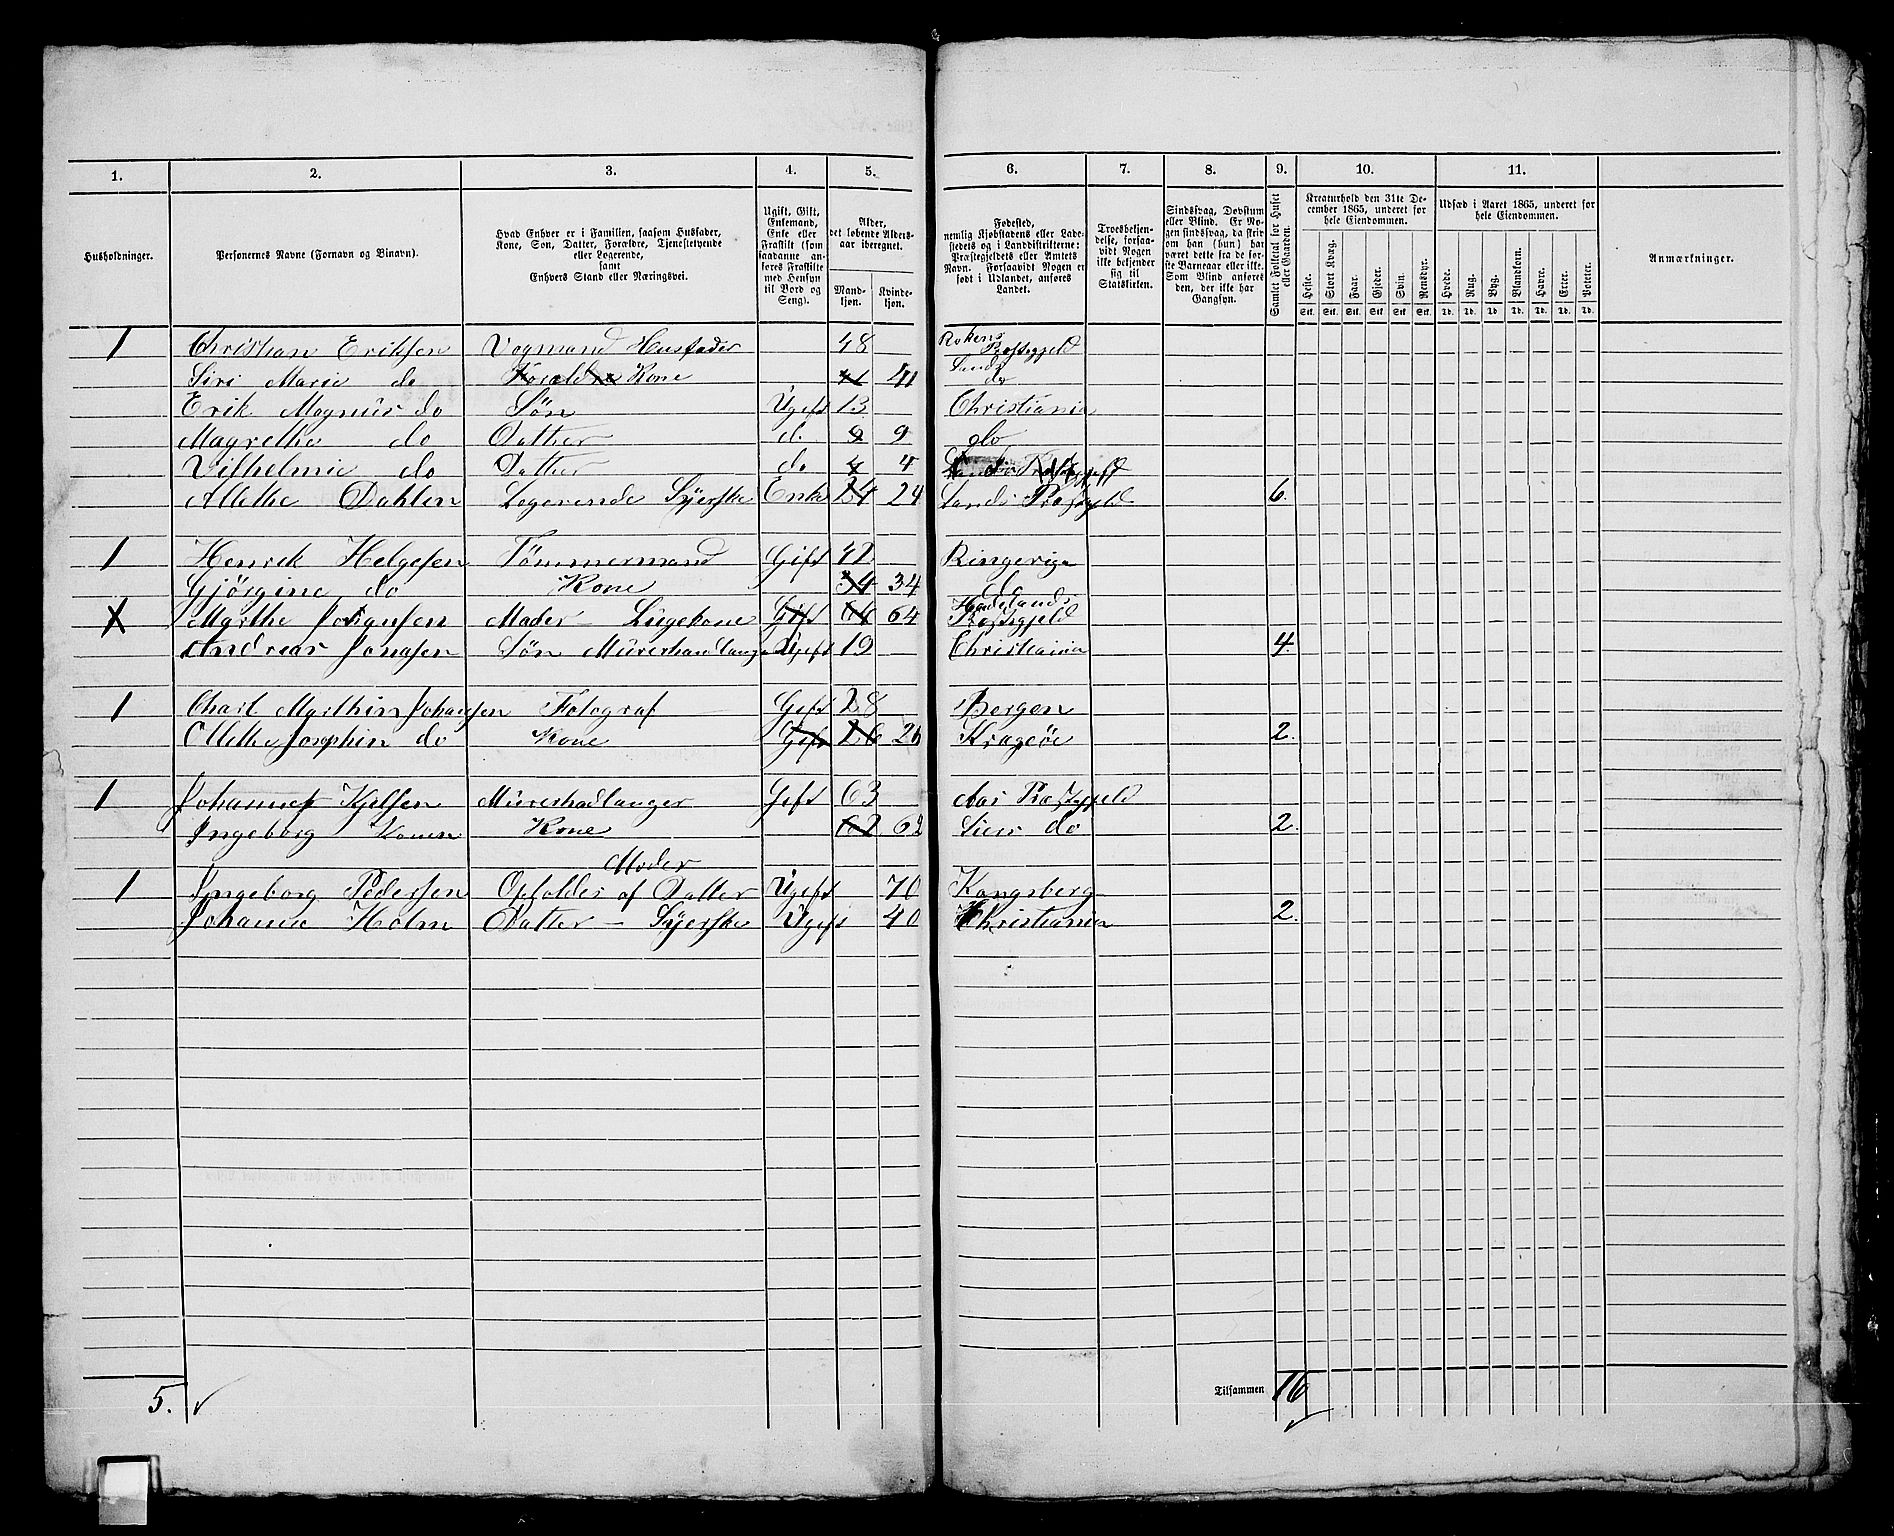 1. 2. 3. 4. 5. 6. 7. 8. 9. 10. 11.
Husholdninger.
Personernes Navne (Fornavn og Binavn).
Hvad Enhver er i Familien, saasom Husfader,
Kone, Søn, Datter, Forældre, Tjenestetyende
eller Logerende,
samt
Enhvers Stand eller Næringsvei.
Ugift, Gift,
Enkemand,
Enke eller
Fraskilt (som
saadanne an-
føres Fraskilte
med Hensyn
til Bord og
Seng).
Alder,
det løbende Alders-
aar iberegnet.
Mand-
kjøn.
Kvinde-
kjøn.
Fødested,
nemlig Kjøbstadens eller Lade-
stedets og i Landdistrikterne:
Præstegjeldets eller Amtets
Navn. Forsaavidt Nogen er
født i Udlandet, anføres
Landet.
Troesbekjen-
delse, forsaa-
vidt Nogen
ikke bekjender
sig til
Statskirken.
Sindssvag, Døvstum
eller Blind. Er No-
gen sindssvag, da skriv
om han (hun) har
været dette fra de før-
ste Barneaar eller ikke.
Som Blind anføres
den, der ikke har
Gangsyn.
Samlet Folketal for Huset
eller Gaarden.
Kreaturhold den 31te De-
cember 1865, underet for
hele Eiendommen.
Heste. Stort Kvæg. Faar. Gjeder. Svin. Rensdyr.
Stk. Stk. Stk. Stk. Stk. Stk.
Udsæd i Aaret 1865, underet for
hele Eiendommen.
Hvede. Rug. Byg. Blandkorn. Havre. Erter. Poteter.
Td. Td. Td. Td. Td. Td. Td.
Anmærkninger.
1 Christian Eriksen Vogmand Husfader 48 Rokens Præstegjeld
Siri Marie do Kone 41 Lands do
Erik Magnus do Søn Ugift 13 Christiania
Magrethe do Datter d. 9 do
Vilhelmie do Datter do 4 Præstegjeld
Alethe Dahlen Logerende Syerske Enke 24 Lands Præstgjeld 6.
1 Henrik Helgesen Tømmermand Gift 42 Ringerige
Gjørgine do Kone 34 do
Marthe Johansen Moder Gift 64 Hadelands Præstegjeld
Andreas Jonasen Søn Murerhandlanger Ugift 19 Christiania 4.
1 Charl Marthin Johansen Fotograf Gift 28 Bergen
Ollethe Josephin do Kone Gift 26 Krageøe 2.
1 Johannes Kjelsen Murerhadlanger Gift 63 Aas Præstgjeld
Ingeborg Konen Kone 62 Lier do 2.
Moder
1 Ingeborg Pedersen Opholdes af Datter Ugift 70 Kongsberg
Johanne Holm Datter – Syerske Ugift 40 Christiania 2.
5. Tilsammen 16